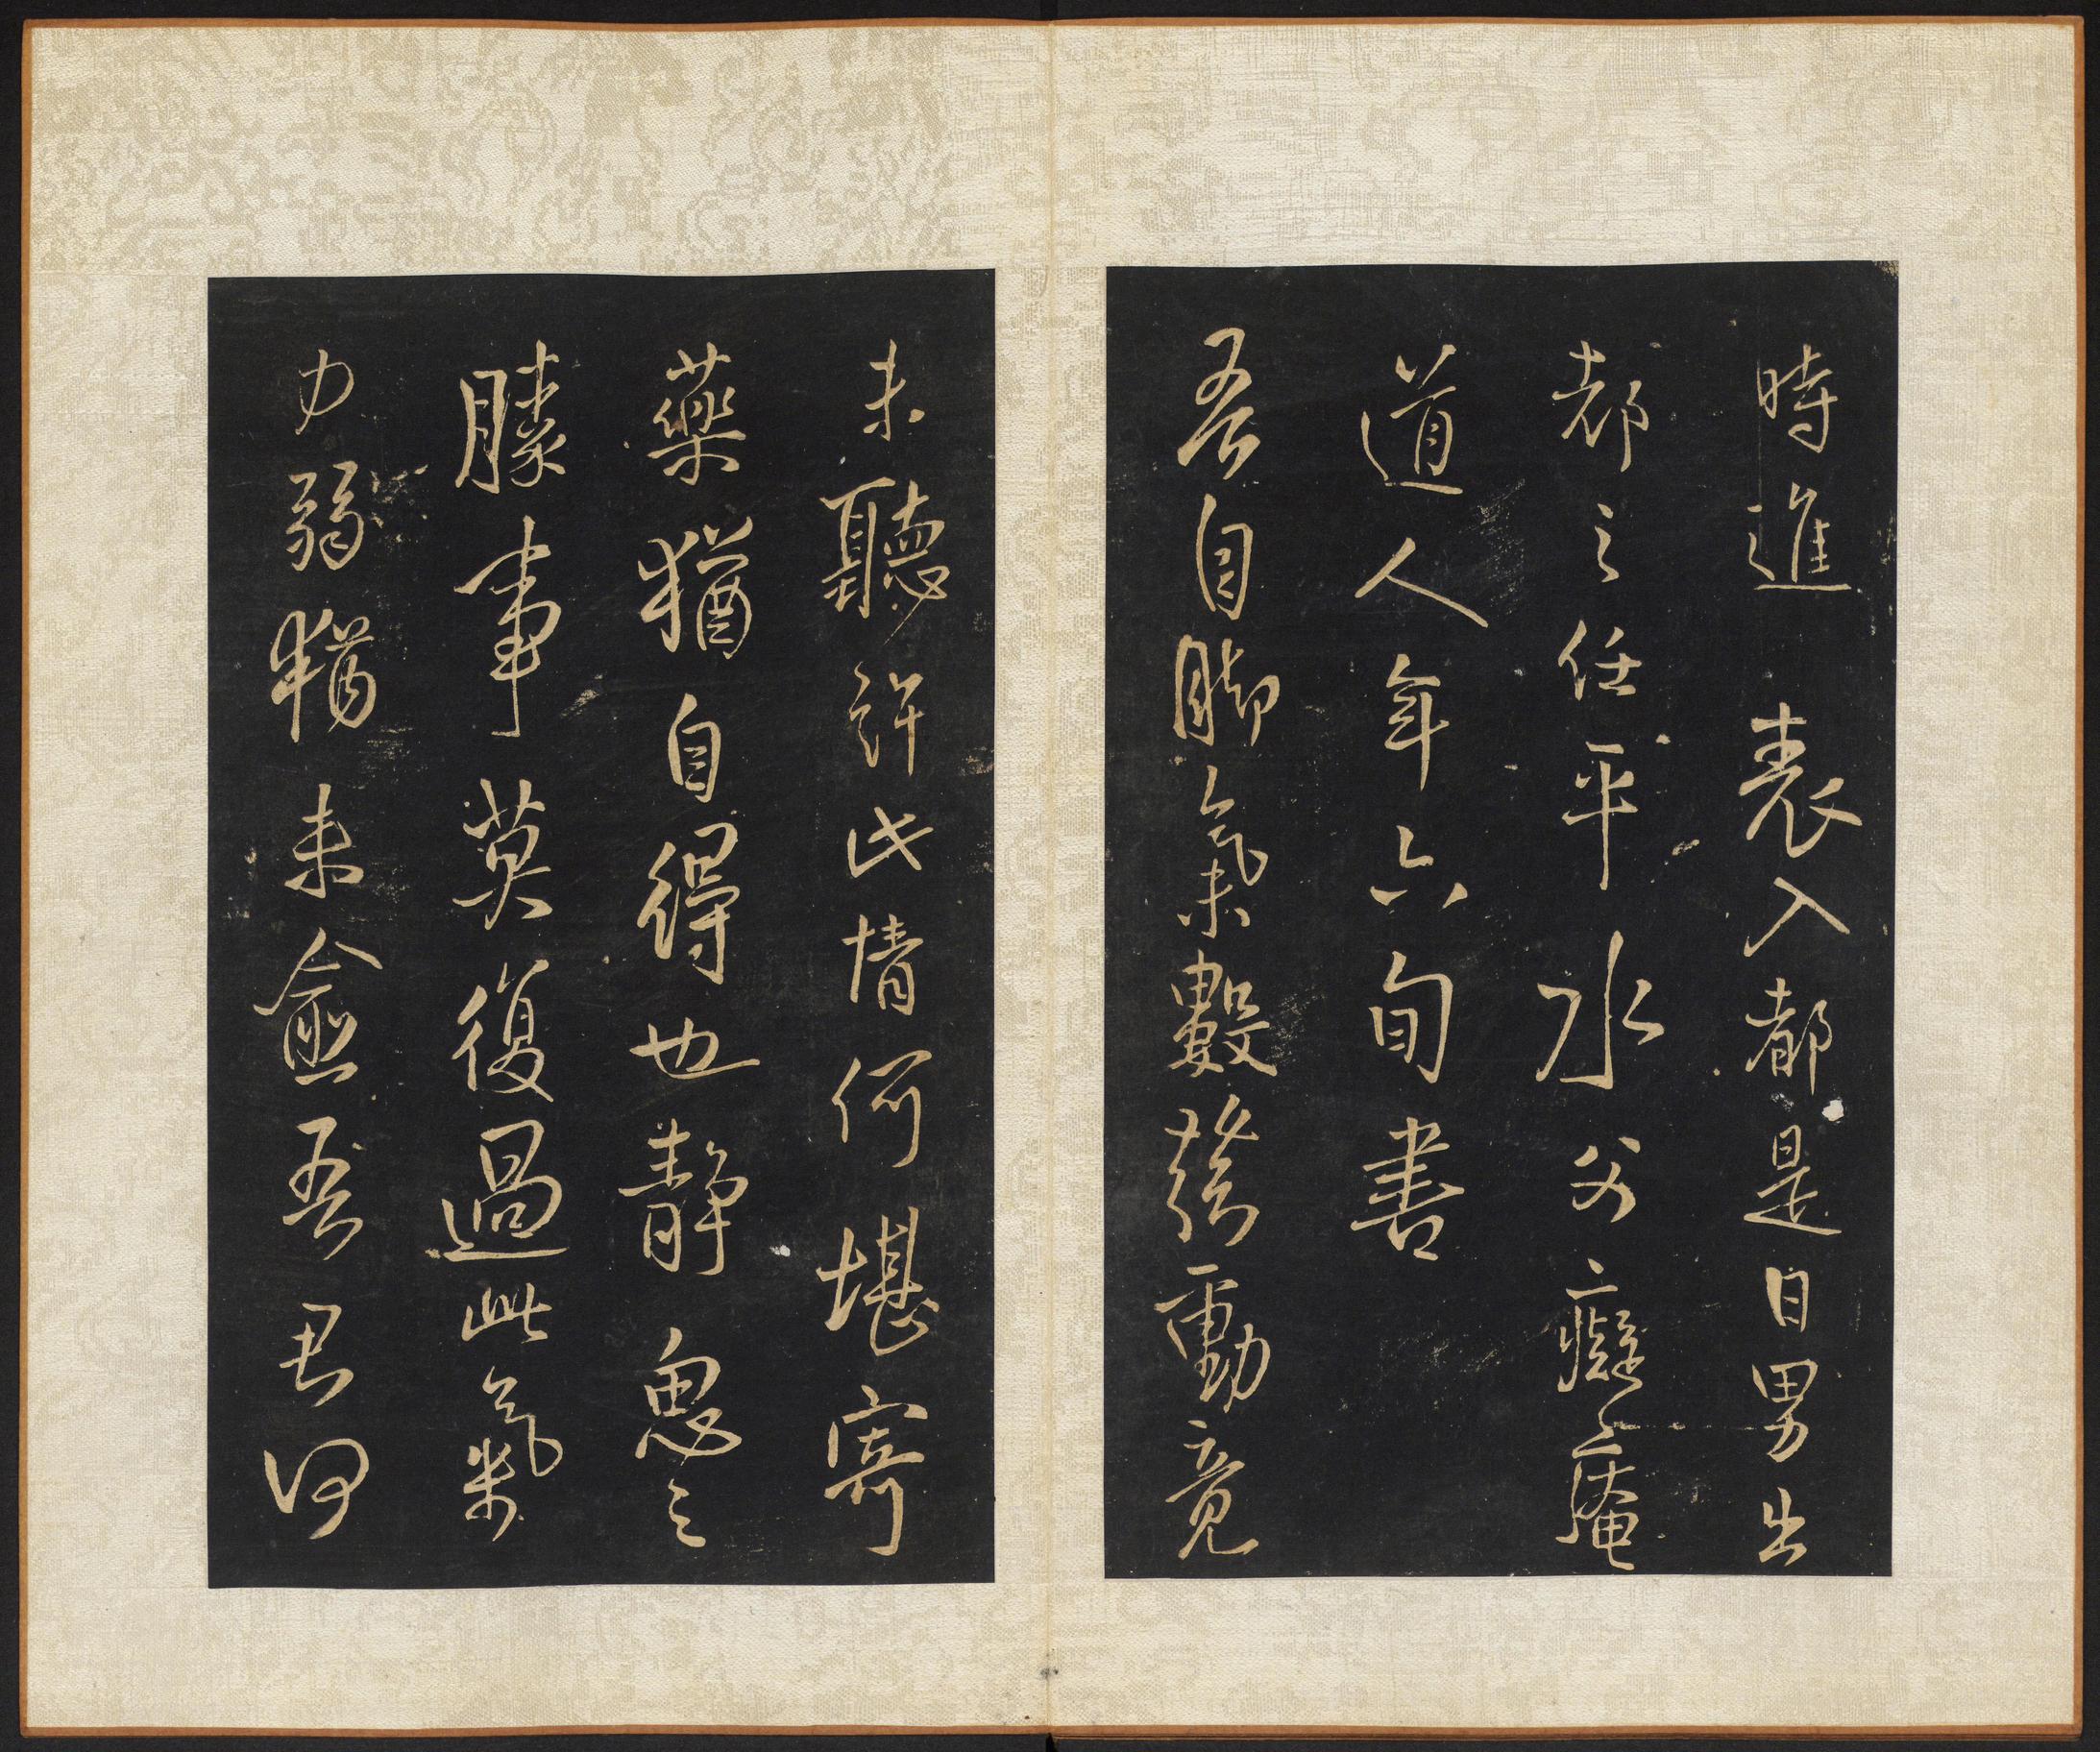 時進 表入都是日男出
都之任平水父癡庵
道人年六旬書
吾自脚氣數發動竟
未聽許此情何堪寄
藥猶自得也靜思之
勝事莫復過此氣
力弱猶未愈吾君何